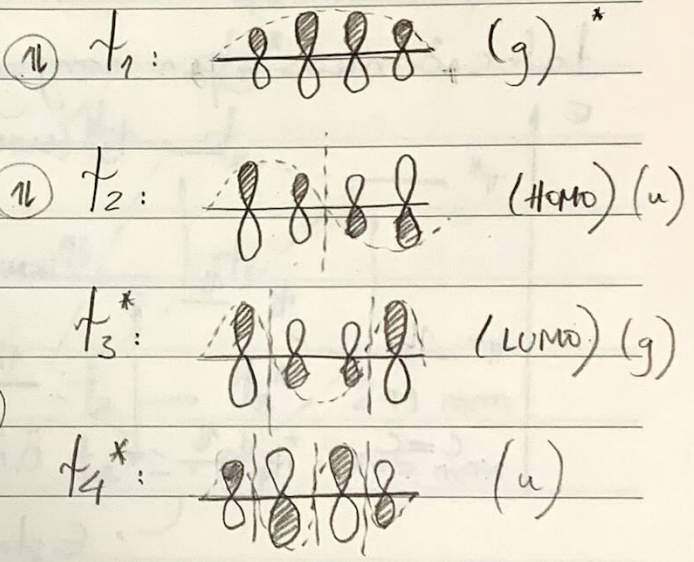 ⇅ ψ₁: (g)*
⇅ ψ₂: (HOMO) (u)
ψ₃*: (LUMO) (g)
ψ₄*: (u)